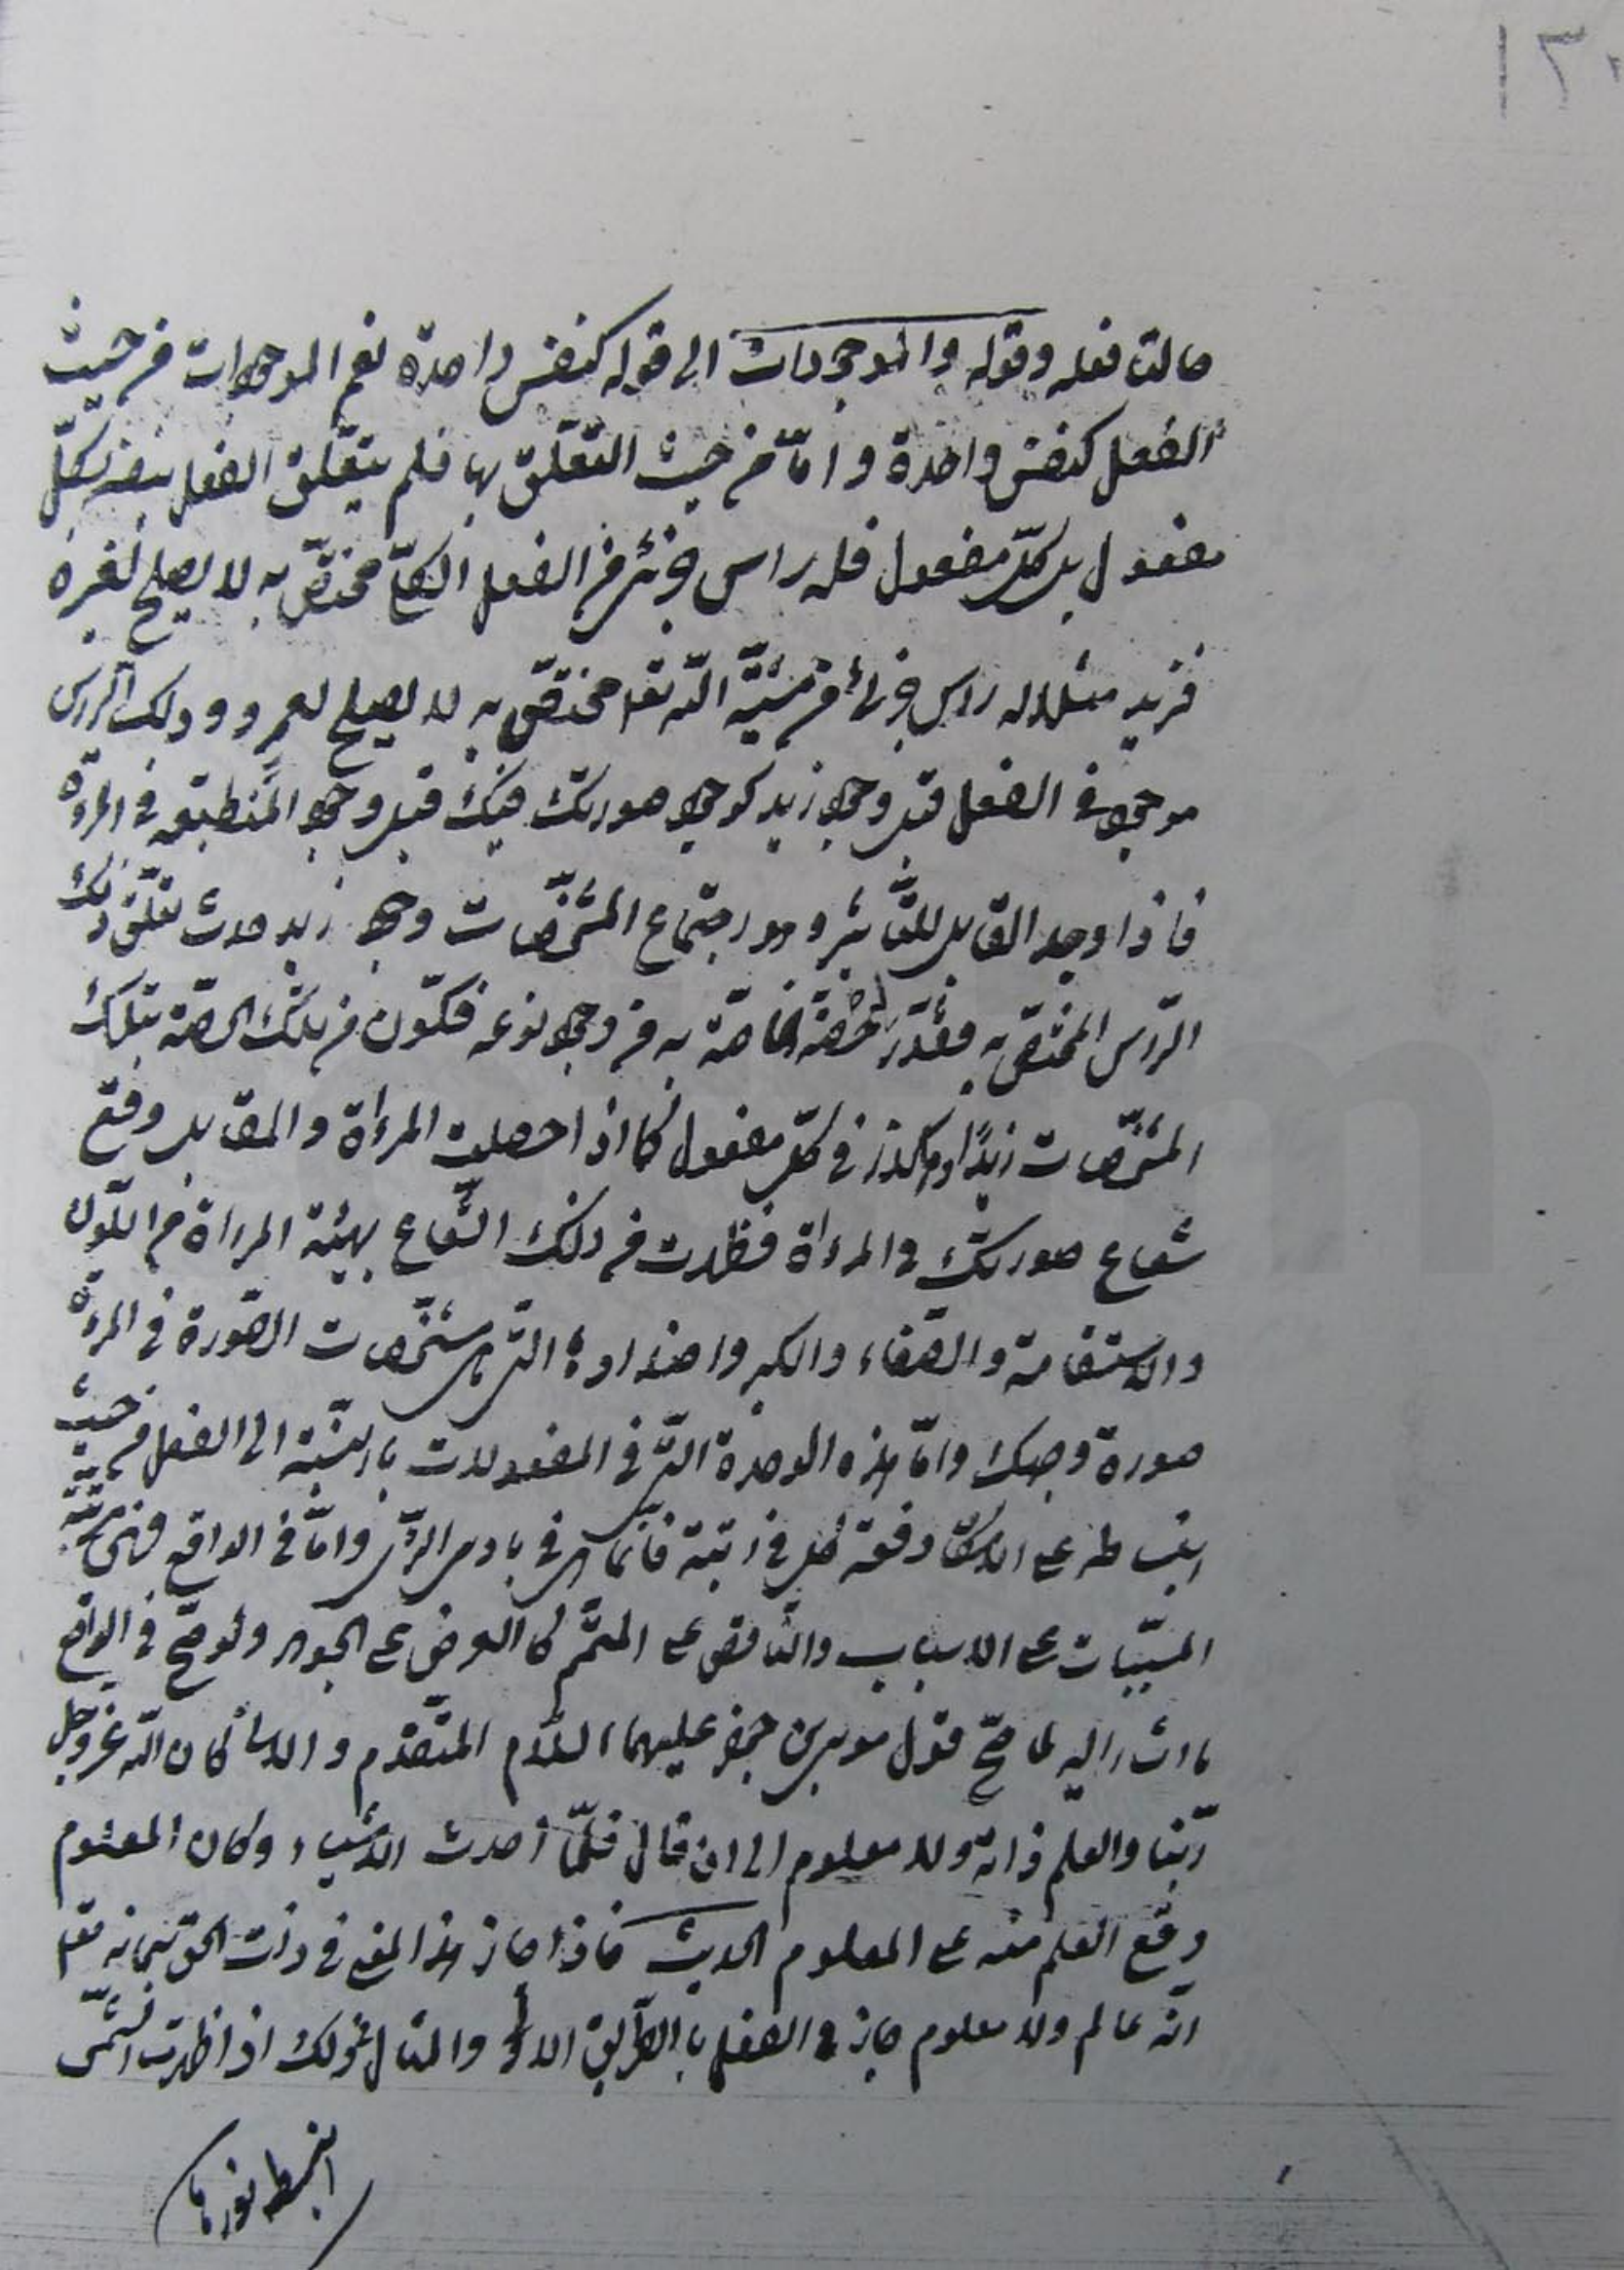 ١٣٠
حالات فعله وقوله والموجودات الى قوله كنفس واحدة نعم الموجودات من حيث
الفعل كنفس واحدة وامّا من حيث التعلّق بها فلم يتعلّق الفعل بنفسه بكلّ
مفعول بل كلّ مفعول فله راس جزئى من الفعل الكلّى مختصّ به لا يصلح لغيره
فزيد مثلا له راس جزئى من مشيّة اللّه تعا مختصّ به لا يصلح لعمرو وذلك الرّاس
موجود فى الفعل قبل وجود زيد كوجود صورتك فيك قبل وجود المنطبعه فى المرءاة
فاذا وجد القابل للتّاثير وهو اجتماع المشخّصات وجود زيد حدث تعلّق ذلك
الرّاس المختصّ به فقدّر الحصّة الخاصّة به من وجود نوعه فكوّن من تلك الحصّة بتلك
المشخّصات زيدًا وهكذا فى كلّ مفعول كما اذا حصلت المرءاة والمقابل وقع
شعاع صورتك فى المرءاة فظهرت من ذلك الشّعاع بهيئة المرءاة من اللّون
والاستقامة والصّفاء والكبر واضدادها الّتى هى مشخّصات الصّورة فى المرءاة
صورة وجهك وامّا هذه الوحدة الّتى فى المفعولات بالنّسبة الى الفعل من حيث
انبساطه على الامكان دفعة كل فى رتبته فانّما هى فى بادى الرّاى وامّا فى الواقع فهى مترتّبة
المسبّبات على الاسباب والنّاقص على المتمّم كالعرض على الجوهر ولو صحّ فى الواقع
ما اشار اليه لما صحّ قول موسى بن جعفر عليهما السّلام المتقدّم والا كان اللّه عزّ وجلّ
ربّنا والعلم ذاته ولا معلوم الى ان قال فلمّا احدث الاشياء وكان المعلوم
وقع العلم منه على المعلوم الحديث فاذا جاز هذا المعنى فى ذات الحق سبحانه تعا
انّه عالم ولا معلوم جاز فى الفعل بالطّريق الاولى والمثال فى ذلك اذا ظهرت الشّمس
انبسط نورها